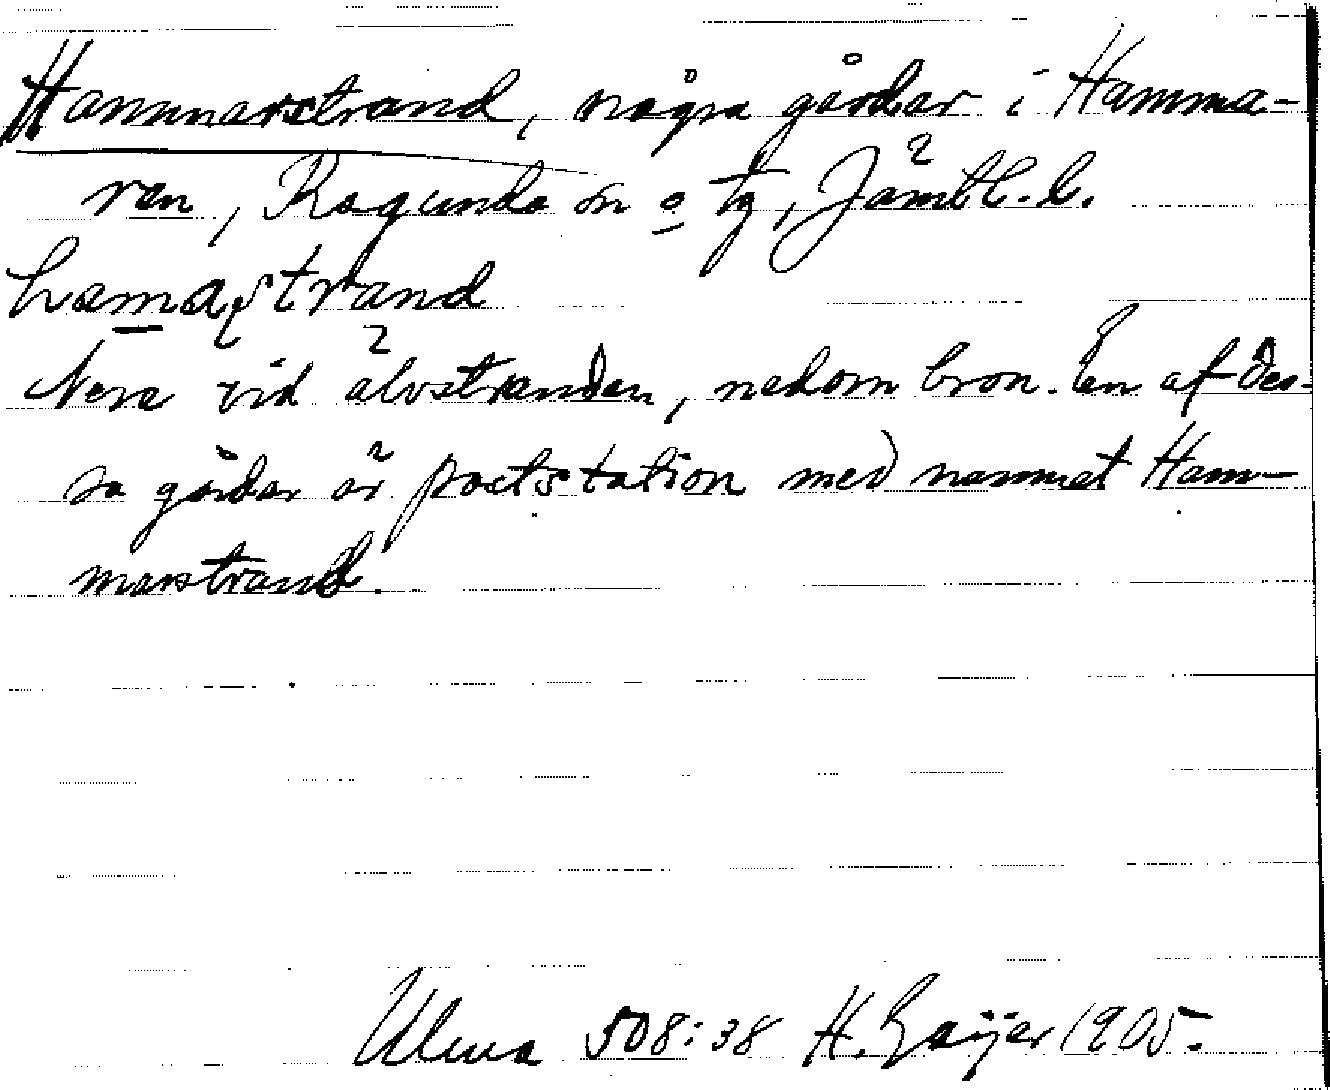 Hammarstrand, några gårdar i Hamma-
ren, Ragunda sn o tg, Jämtl. l.
hamastrand
Nere vid älvstranden, nedom bron. En af des-
sa gårdar är poststation med namnet Ham-
marstrand.
Ulma 508:38 H. Geijer 1905.